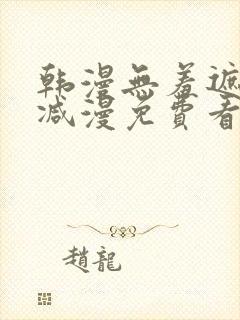 韩漫無羞遮
减漫免費看
趙龍